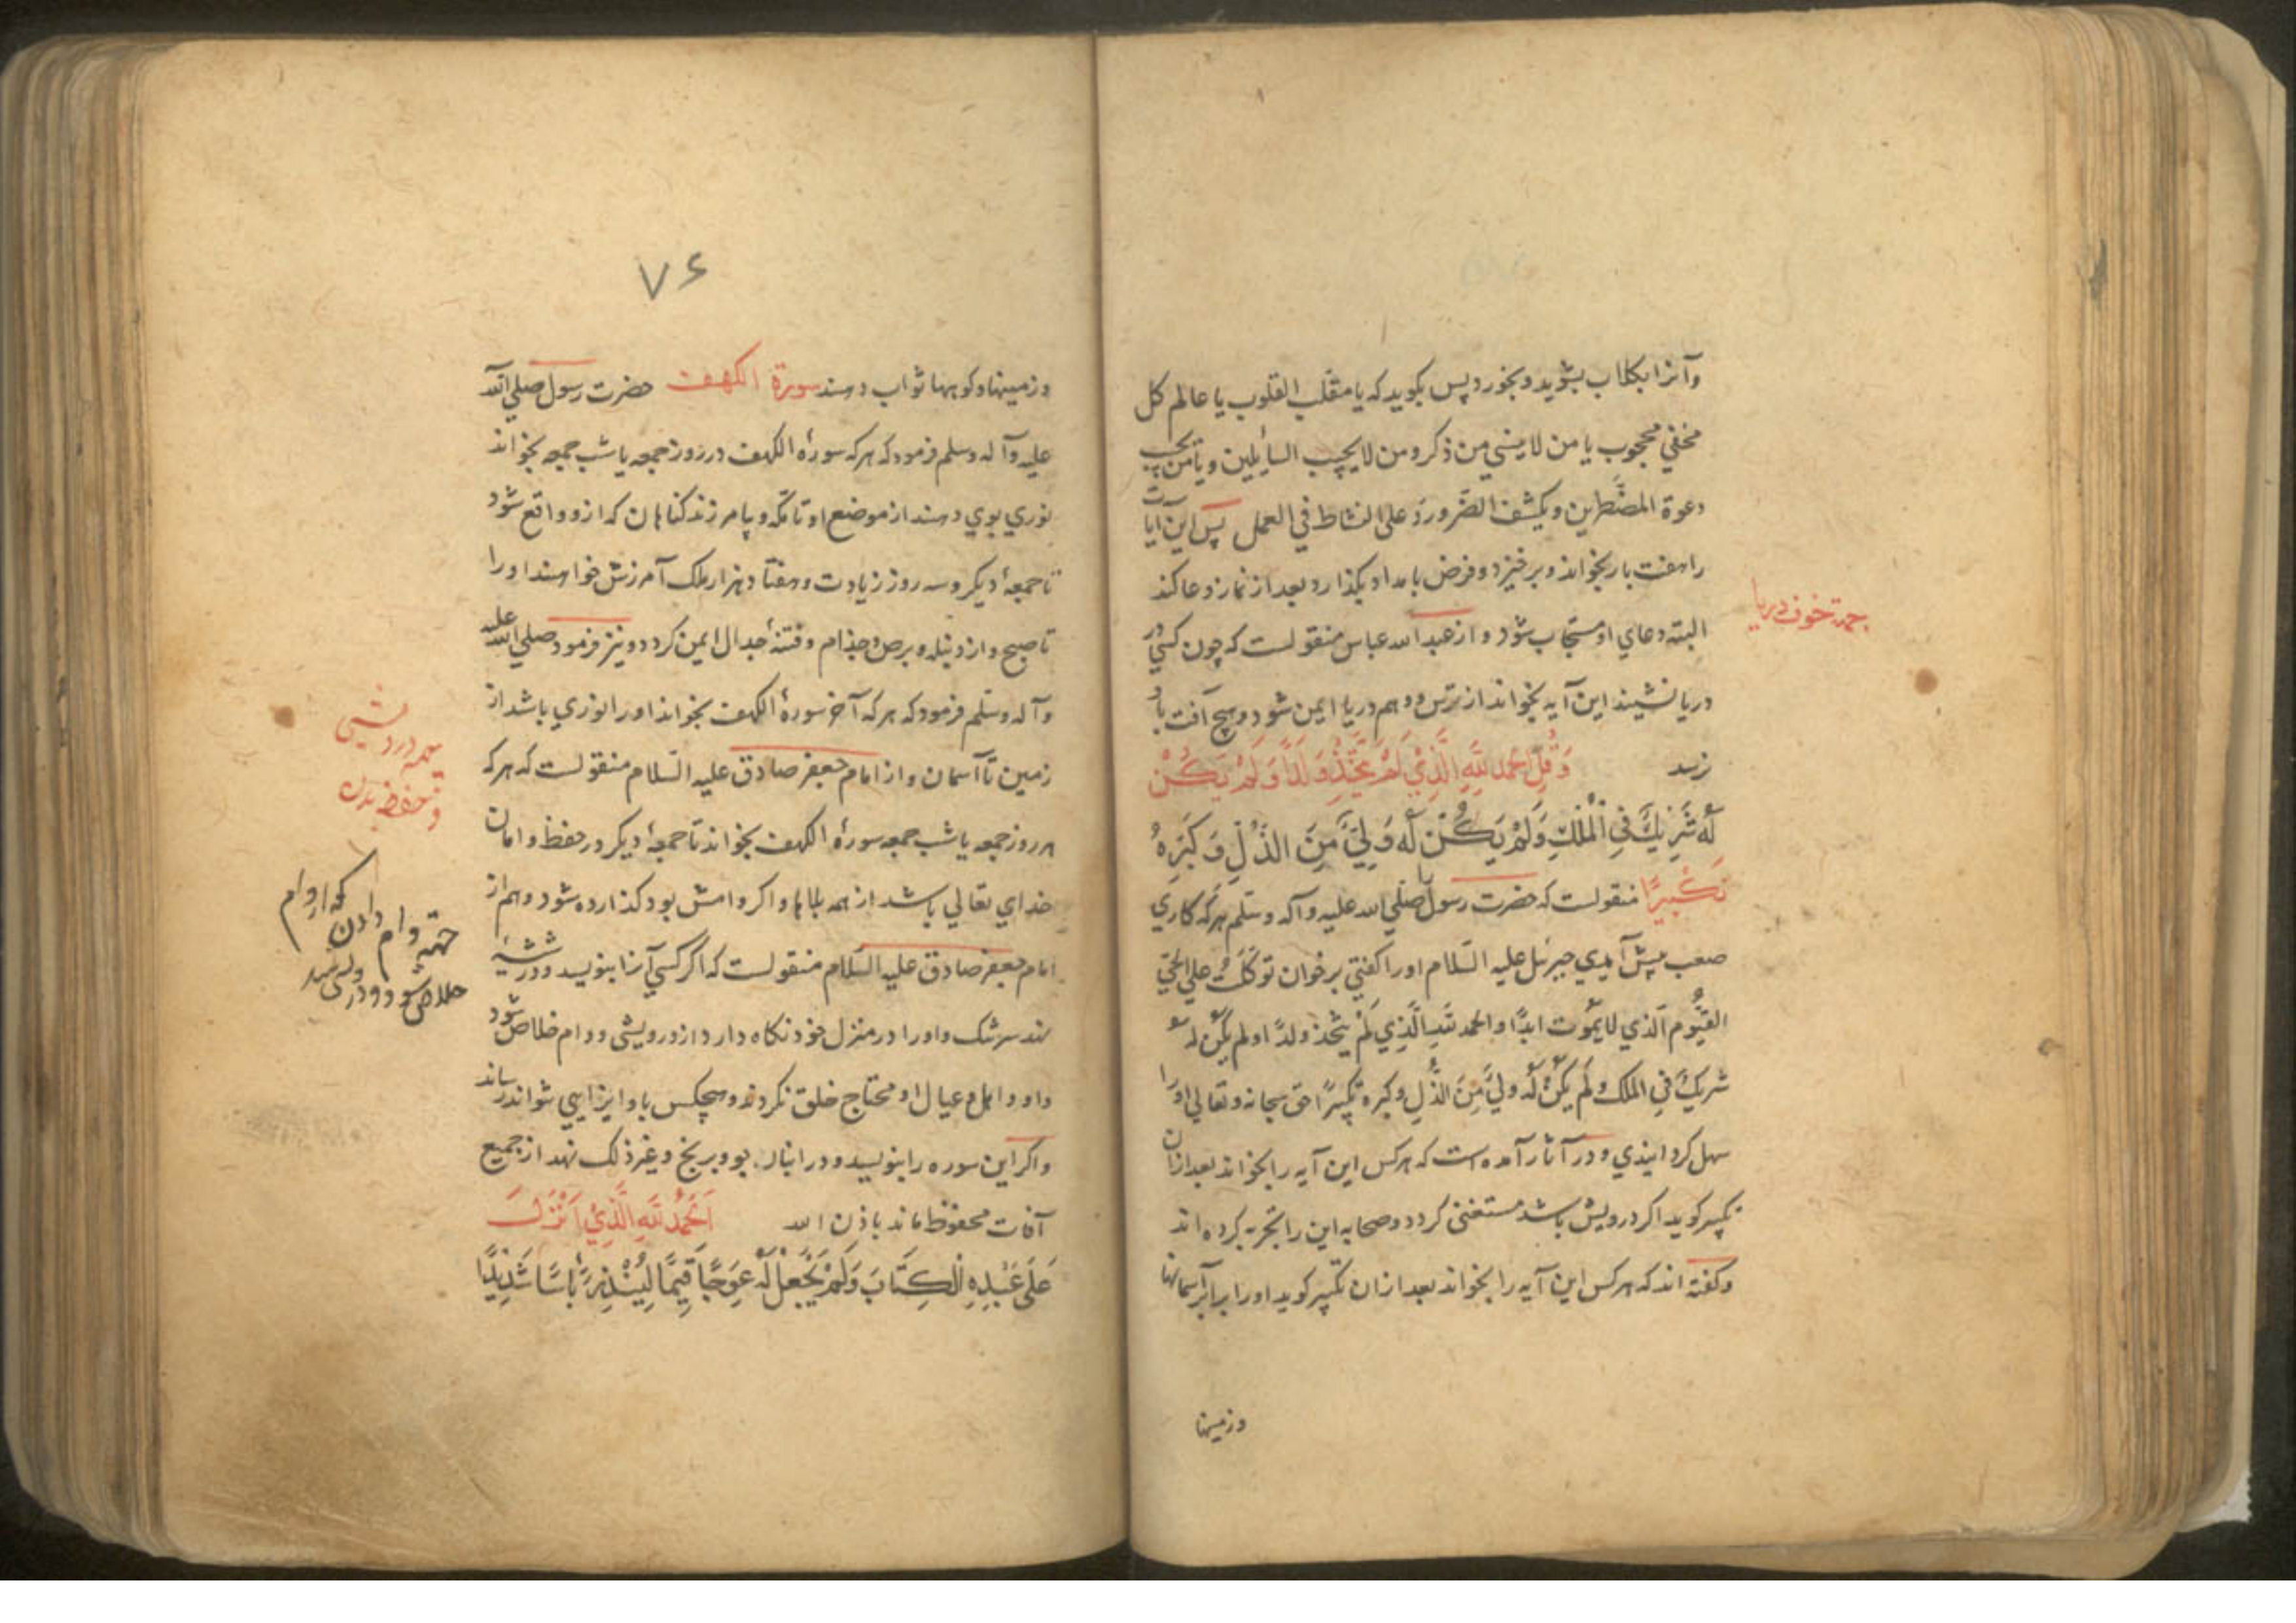 وآنرا بکلاب بشوید و بخورد پس بکوید که یا مقلب القلوب یا عالم کل
مخفي محجوب یا من لا ینسي من ذکره ومن لا یخیب السایلین و یا من یجیب
دعوة المضطرین ویکشف الضر ورد علی النشاط في العمل پس این ایات
را هفت بار بخواند و برخیزد و فرض بامداد بکذارد بعد از نماز دعا کند
البته دعاي او مستجاب شود و از عبد الله عباس منقولست که چون کسي در
دریا نشیند این آیه بخواند از ترس و وهم دریا ایمن شود و هیچ آفت باو
نرسد وَقُلِ الْحَمْدُ لِلَّهِ الَّذِي لَمْ يَتَّخِذْ وَلَدًا وَلَمْ يَكُنْ
لَهُ شَرِيكٌ فِي الْمُلْكِ وَلَمْ يَكُنْ لَهُ وَلِيٌّ مِنَ الذُّلِّ وَكَبِّرْهُ
تَكْبِيرًا منقولست که حضرت رسول را صلي الله علیه وآله وسلم هر که کاري
صعب پیش آمدي جبرئیل علیه السلام اورا کفتي برخوان توکلت علی الحي
القیوم الذي لا یموت ابدًا والحمد لله الذي لم یتخذ ولدًا ولم یکن له
شریک في الملک ولم یکن له ولي من الذل وکبره تکبیرًا حق سبحانه وتعالي اورا
سهل کردانیدي و در آثار آمده است که هر کس این آیه را بخواند بعد ازان
تکبیر کوید اکر درویش باشد مستغنی کردد و صحابه این را تجربه کرده اند
وکفته اند که هر کس این آیه را بخواند بعد ازان تکبیر کوید اورا برابر آسمانها
وزمینها
جهة خوف دریا
۷۶
وزمینها وکوهها ثواب دهند سورة الکهف حضرت رسول صلي الله
علیه وآله وسلم فرمود که هر که سورۀ الکهف در روز جمعه یا شب جمعه بخواند
نوري بوي دهند از موضع او تا مکه و بیامرزند کناهان که ازو واقع شود
تا جمعۀ دیکر و سه روز زیادت و هفتاد هزار ملک آمرزش خواهند اورا
تا صبح و از دنبله و برص و جذام و فتنۀ دجال ایمن کردد و نیز فرمود صلي الله علیه
وآله وسلم فرمود که هر که آخر سورۀ الکهف بخواند اورا نوري باشد از
زمین تا آسمان و از امام جعفر صادق علیه السلام منقولست که هر که
هر روز جمعه یا شب جمعه سورۀ الکهف بخواند تا جمعۀ دیکر در حفظ و امان
خداي تعالي باشد از همه بلاها و اکر وامش بود کذارده شود و هم از
امام جعفر صادق علیه السلام منقولست که اکر کسي آنرا بنویسد و در شیشۀ
نهد سر تنک و اورا در منزل خود نکاه دارد از درویشی و وام خلاص شود
و او و اهل و عیال او محتاج خلق نکردند و هیچکس باو ایذایي نتواند رساند
و اکر این سوره را بنویسد و در انبار جو و برنج و غیر ذلک نهد از جمیع
آفات محفوظ ماند باذن الله اَلْحَمْدُ لِلَّهِ الَّذِي اَنْزَلَ
عَلَى عَبْدِهِ الْكِتَابَ وَلَمْ يَجْعَلْ لَهُ عِوَجًا قَيِّمًا لِيُنْذِرَ بَأْسًا شَدِيدًا